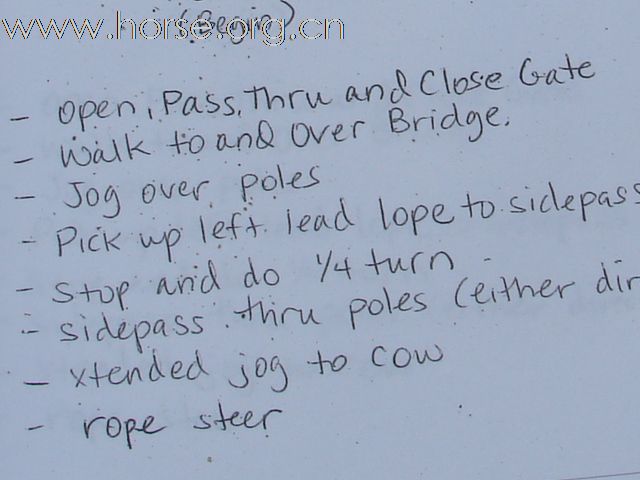 www.horse.org.cn
(Begin)
- open, Pass, Thru and Close Gate
- walk to and over Bridge.
- Jog over poles
- Pick up left lead lope to sidepass
- Stop and do 1/4 turn
- sidepass thru poles (either dir
- xtended jog to cow
- rope steer